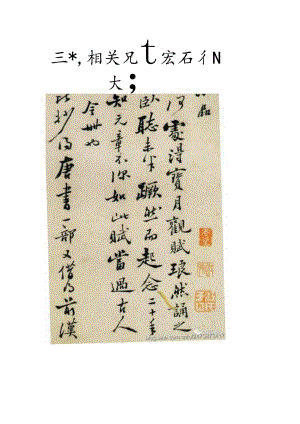 三*,相关兄t宏石彳N
大;
何處得寶月觀賦琅然誦之
臥聽未半蹶然而起念二十年
知元章不盡如此賦當過古人
今世也
比抄得唐書一部又借得前漢